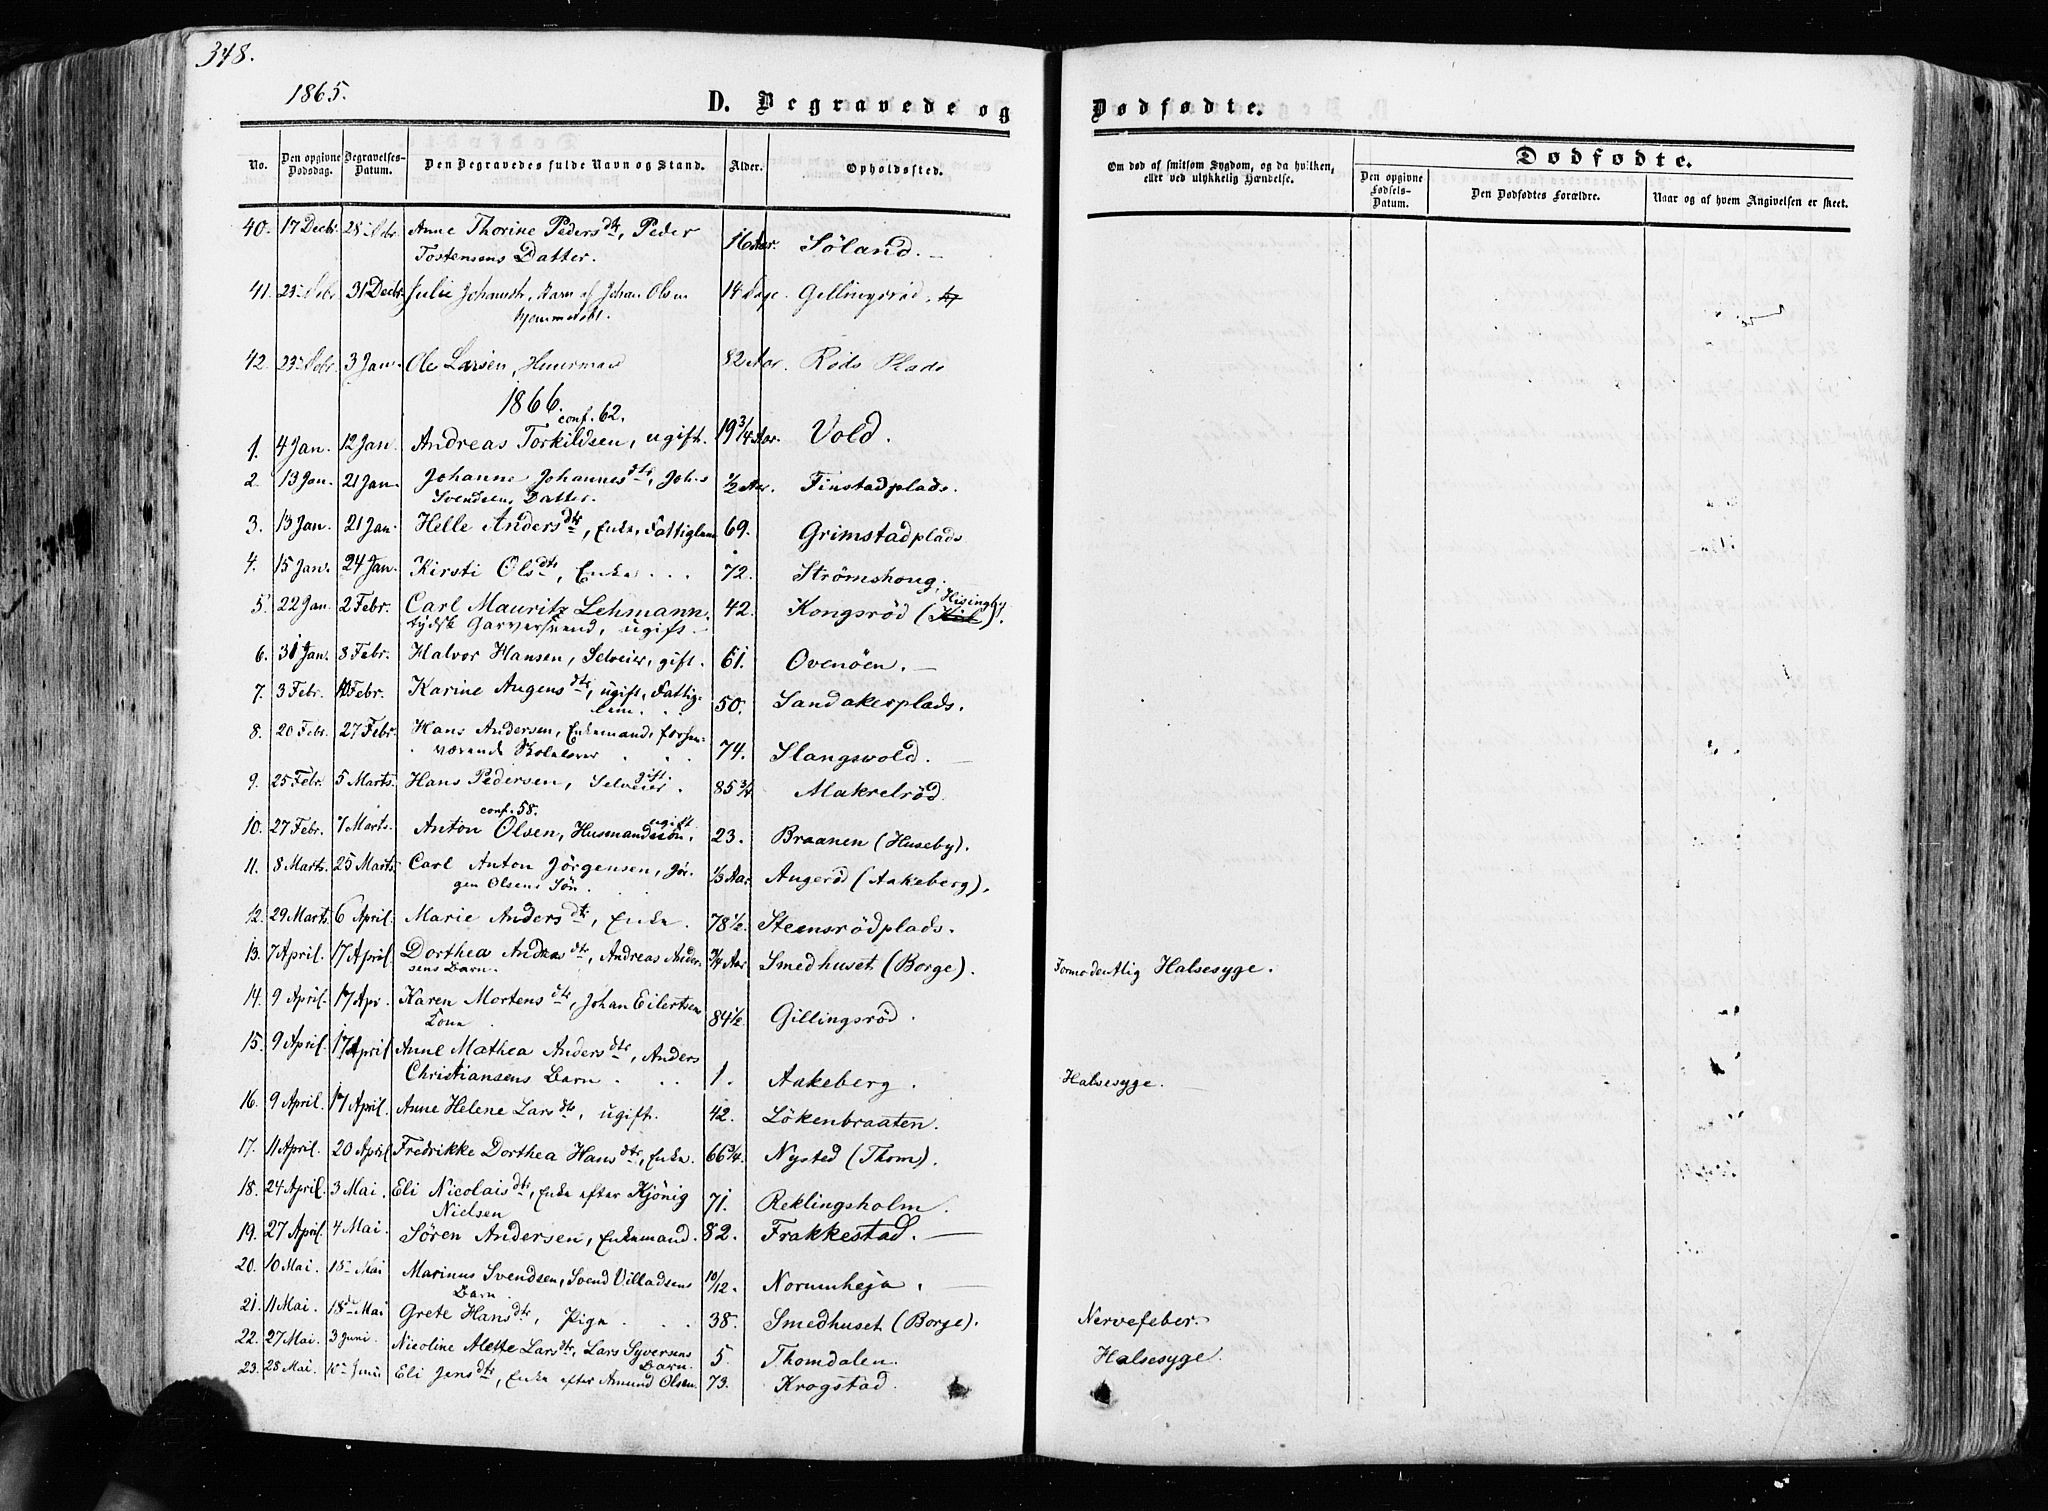 348.
1865.
D. Begravede og Dødfødte.
No. Den opgivne Dødsdag. Begravelses-Datum. Den Begravedes fulde Navn og Stand. Alder. Opholdssted.
Om død af smitsom Sygdom, og da hvilken, eller ved ulykkelig Hændelse.
Dødfødte.
Den opgivne Fødsels-Datum. Den Dødfødtes Forældre. Naar og af hvem Angivelsen er skeet.
40. 17 Decbr. 28 Anne Thorine Pedersdtr, Peder 16 Aar. Söland.
Tostensens Datter.
41. 31 Decbr. Julie Johansdt, Barn af Johan Olsen 14 Dage. Gillingsröd,
42. 23 3 Jan. Ole Larsen, Huusmand 82 Aar. Röds Plads
1866.
conf. 62.
1. 4 Jan. 12 Jan. Andreas Torkildsen, ugift. 19 3/4 Aar. Vold.
2. 13 Jan. 21 Jan. Johanne Johannesdtr, Johs 1/2 Aar. Finstadplads.
Svendsens Datter.
3. 13 Jan. 21 Jan. Helle Andersdtr, Enke, Fattiglem 69. Grimstadplads
4. 15 Jan. 24 Jan. Kirsti Olsdtr, Enke . . . 72. Strömshoug.
5. 22 Jan. 2 Febr. Carl Mauritz Lehmann. 42. Kongsröd (Hisingby).
tydsk Garversvend, ugift.
6. 31 Jan. 8 Febr. Halvor Hansen, Selveier, gift. 61. Ovenöen.
7. 3 Febr. Febr. Karine Augensdtr, ugift, Fattig- 50. Sandakerplads.
lem. . .
8. 20 Febr. 27 Febr. Hans Andersen, Enkemand, forhen- 74. Slangsvold.
værende Skolelærer . . .
9. 25 Febr. 5 Marts. Hans Pedersen, Selveier. gift. 85 3/4 Makrelröd.
conf. 58.
10. 27 Febr. 7 Marts. Anton Olsen, Husmandssön, ugift 23. Braanen (Huseby).
11. 8 Marts. 25 Marts. Carl Anton Jörgensen, Jör- 1/3 Aar. Augeröd (Aakeberg).
gen Olsens Sön.
12. 29 Marts. 6 April. Marie Andersdtr, Enke. 78 1/2. Steensrödplads.
13. 7 April. 17 April. Dorthea Andreasdtr, Andreas Ander- 3/4 Aar Smedhuset (Borge). Formodentlig Halsesyge.
sens Barn.
14. 9 April. 17 Apr. Karen Mortensdtr, Johan Eilertsens 84 1/2. Gillingsröd.
Kone
15. 9 April. 17 April Anne Mathea Andersdtr, Anders
Christiansens Barn . . . 1. Aakeberg. Halsesyge.
16. 9 April. 17 April. Anne Helene Larsdtr, ugift. 42. Lökenbraaten.
17. 11 April. 20 April Fredrikke Dorthea Hansdtr, Enke. 66 3/4. Nysted (Thom).
18. 24 April. 3 Mai. Eli Nicolaisdtr, Enke efter Kjönig 71. Reklingsholm.
Nielsen
19. 27 April. 4 Mai. Sören Andersen, Enkemand. 82. Frakkestad.
20. 10 Mai. 18 Mai Marinus Svendsen, Svend Villadsens 10/12. Normnheja.
Barn.
21. 11 Mai. 18de Mai Grete Hansdtr, Pige . . . 38. Smedhuset (Borge). Nervefeber.
22. 27 Mai. 3 Juni. Nicoline Alette Larsdtr, Lars Syversens 5. Thomdalen. Halsesyge.
Barn.
23. 28 Mai. Juni Eli Jensdtr, Enke efter Amund Olsen. 73. Krogstad.